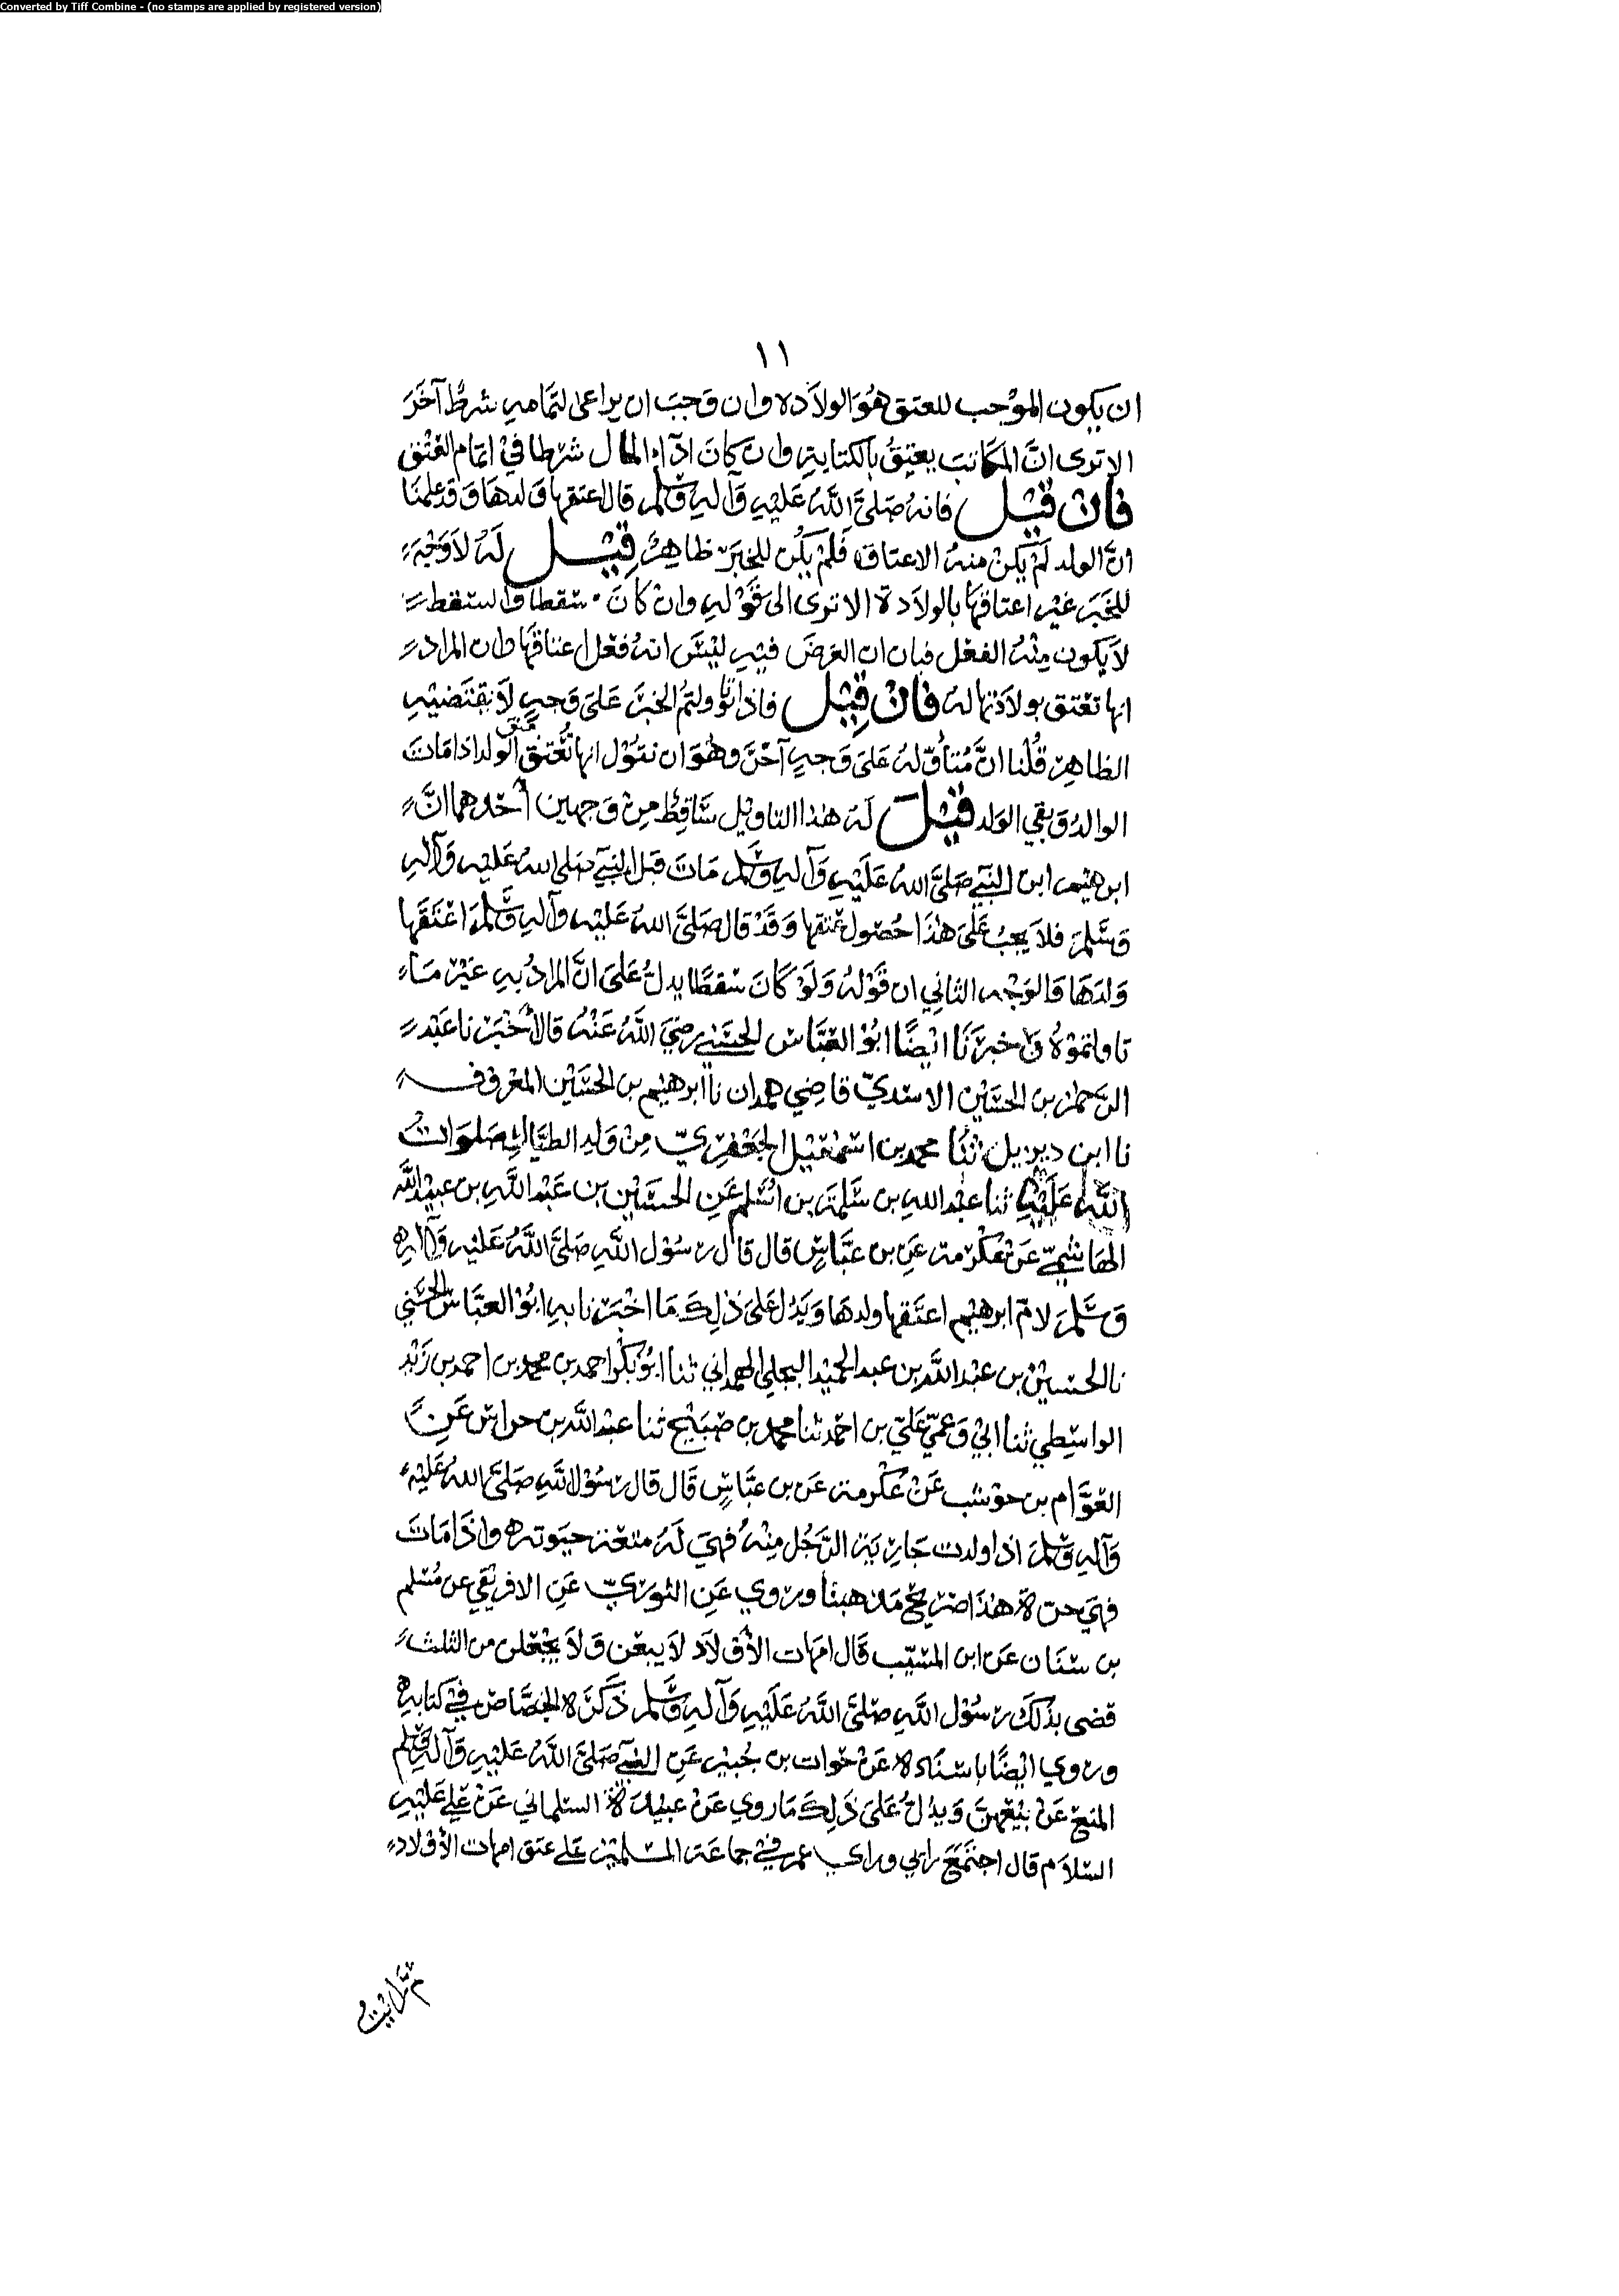 Converted by Tiff Combine - (no stamps are applied by registered version)
١١
ان يكون الموجب للعتق هو الولادة وان وجب ان يراعى لتمامه شرط آخر
الا ترى انَّ المكاتب يعتق بالكتابة وان كان ادآء المال شرطا في اتمام العتق
فان قيل فانه صلى الله عليه وآله وسلم قال اعتقها ولدها وقد علمنا
انَّ الولد لم يكن منه الاعتاق فلم يكن للخبر ظاهر قيل له لا وجه
للخبر غير اعتاقها بالولادة الا ترى الى قوله وان كان سقطا والسقط
لا يكون منه الفعل فبان ان الغرض فيه ليس انه فعل اعتاقها وان المراد
انها تعتق بولادتها له فان قيل فاذا تاولتم الخبر على وجه لا يقتضيه
الظاهر قلنا انَّ نتاوله على وجه آخر وهو ان نقول انها تعتق الولد اذا مات
الوالد وبقي الولد قيل له هذا التاويل ساقط من وجهين احدهما انَّ
ابرهيم ابن النبي صلى الله عليه وآله وسلم مات قبل النبي صلى الله عليه وآله
وسلم فلا يجب على هذا حصول عتقها وقد قال صلى الله عليه وآله وسلم اعتقها
ولدها والوجه الثاني ان قوله ولو كان سقطا يدل على انَّ المراد به غير ما
تاولتموه واخبرنا ايضًا ابو العباس الحسني رضي الله عنه قال اخبرنا عبد
الرحمن بن الحسين الاسدي قاضي همدان نا ابرهيم بن الحسين المعروف
نا ابن ديزيل ثنا محمد بن اسمعيل الجعفري من ولد الطيار صلوات
الله عليه ثنا عبد الله بن سلمة بن اسلم عن الحسين بن عبد الله بن عبيد الله
الهاشمي عن عكرمة عن بن عباس قال قال رسول الله صلى الله عليه وآله
وسلم لام ابرهيم اعتقها ولدها ويدل على ذلك ما اخبرنا به ابو العباس الحسني
نا الحسين بن عبد الله بن عبد الحميد البجلي الهمداني ثنا ابو بكر احمد بن محمد بن احمد بن زيد
الواسطي ثنا ابي وعمي علي بن احمد ثنا محمد بن صبيح ثنا عبد الله بن حراش عن
العوَّام بن حوشب عن عكرمة عن بن عباس قال قال رسول الله صلى الله عليه
وآله وسلم اذا ولدت جارية الرجل منه فهي له متعة حيوته واذا مات
فهي حرة هذا صريح مذهبنا وروي عن الثوري عن الافريقي عن مسلم
بن سنان عن ابن المسيب قال امهات الأولاد لا يبعن ولا يجعلن من الثلث
قضى بذلك رسول الله صلى الله عليه وآله وسلم ذكره الجصاص في كتابه
وروي ايضًا باسناده عن خوات بن جبير عن النبي صلى الله عليه وآله وسلم
المنع عن بيعهن ويدل على ذلك ما روي عن عبيدة السلماني عن علي عليه
السلام قال اجتمع رايي وراي عمر في جماعة المسلمين على عتق امهات الأولاد